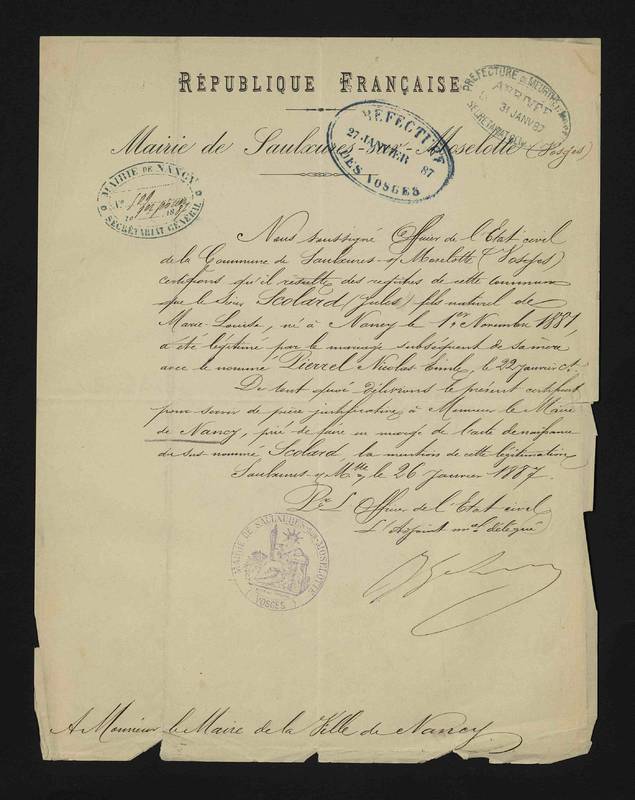 RÉPUBLIQUE FRANÇAISE
PRÉFECTURE DE MEURTHE
ARRIVÉE
31 JANV 87
SECRÉTARIAT
Mairie de Saulxures-sur-Moselotte (Vosges)
PRÉFECTURE
27 JANVIER 87
DES VOSGES
MAIRIE DE NANCY
No
18
SECRÉTARIAT GÉNÉRAL
Nous soussigné Officier de l'Etat civil
de la Commune de Saulxures-s/Moselotte (Vosges)
certifions qu'il résulte des registres de cette commune
que le Sieur Scolard (Jules) fils naturel de
Marie-Louise, né à Nancy le 1er Novembre 1881,
a été légitimé par le mariage subséquent de sa mère
avec le nommé Pierrel Nicolas Emile, le 22 janvier ct.
Du tout quoi délivrons le présent certificat
pour servir de pièce justificative à Monsieur le Maire
de Nancy, prié de faire en marge de l'acte de naissance
du sus-nommé Scolard, la mention de cette légitimation
Saulxures-s/Mtte, le 26 Janvier 1887.
Pr L'Officier de l'Etat civil
L'Adjoint mal délégué
MAIRIE DE SAULXURES-SUR-MOSELOTTE
(VOSGES)
A Monsieur le Maire de la Ville de Nancy